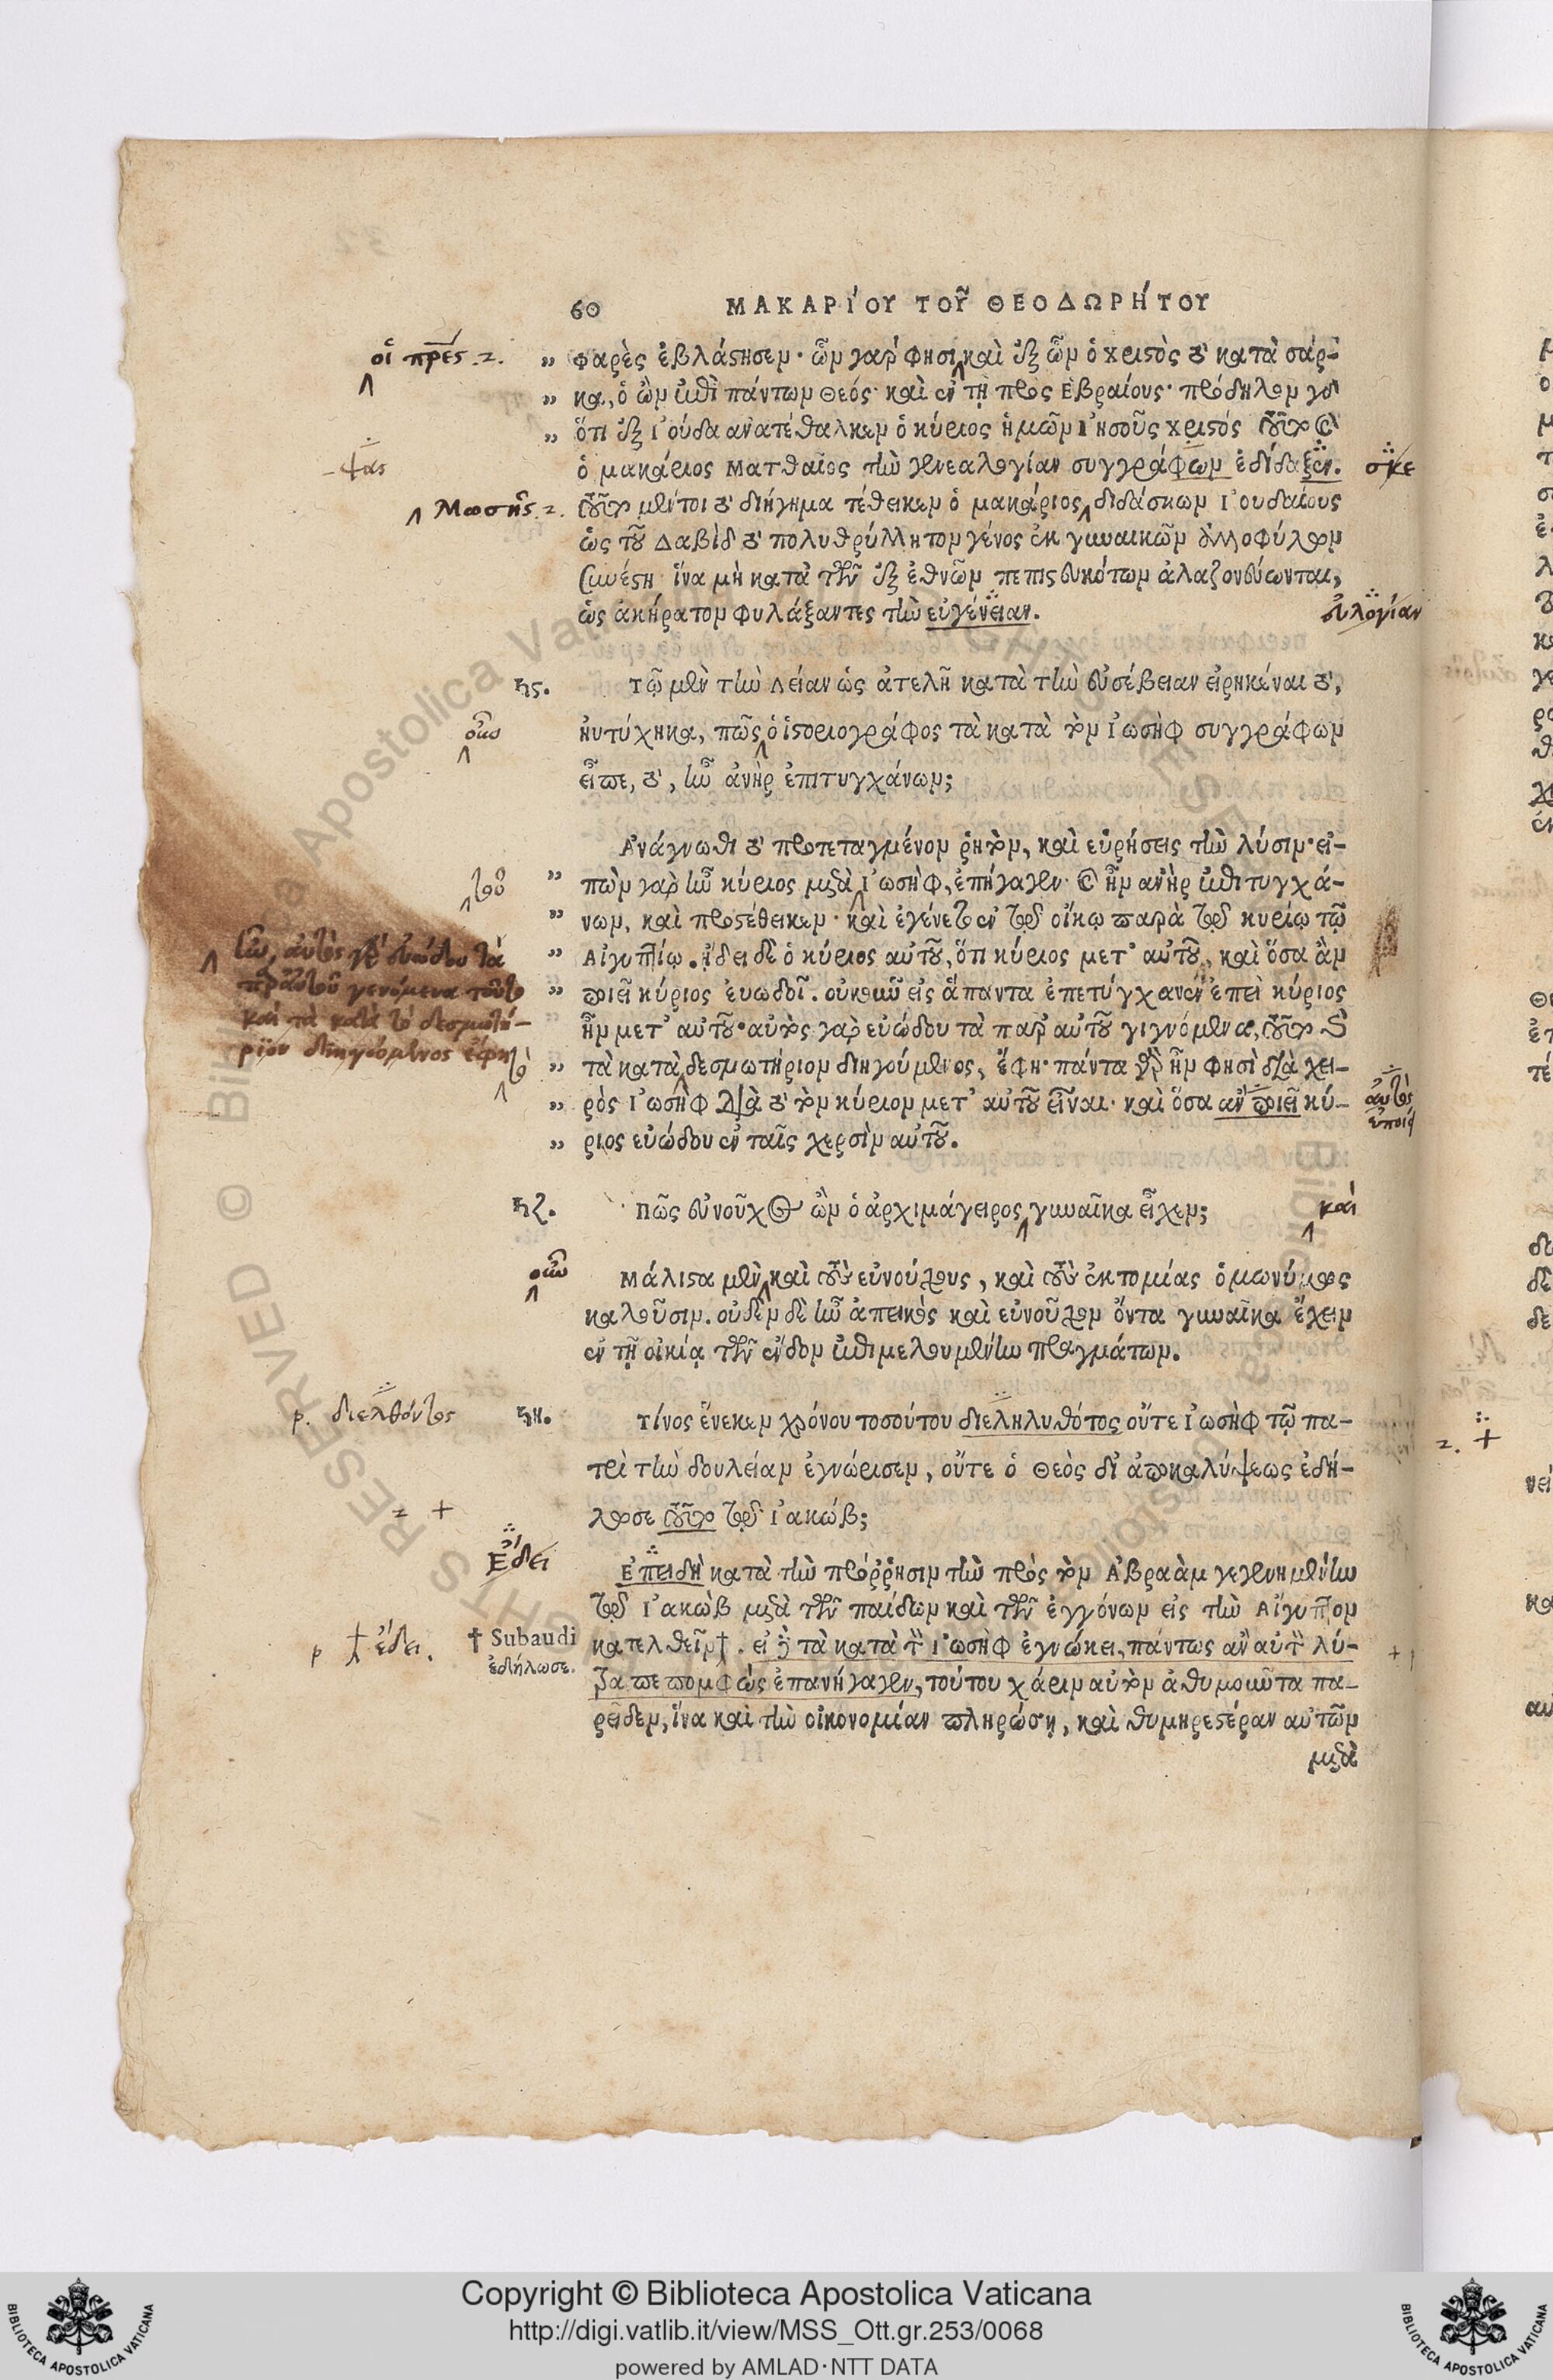 60 ΜΑΚΑΡΊΟΥ ΤΟΥ͂ ΘΕΟΔΩΡΉΤΟΥ
οἱ πρ̅ες. 2.
„ Φαρὲς ἐβλάστησεν· ὧν γάρ φησι καὶ ἐξ ὧν ὁ χριστὸς τὸ κατὰ σάρ-
„ κα, ὁ ὢν ἐπὶ πάντων θεός· καὶ ἐν τῇ πρὸς Ἑβραίους· πρόδηλον γὰρ
„ ὅτι ἐξ Ἰούδα ἀνατέθαλκεν ὁ κύριος ἡμῶν Ἰησοῦς χριστός τοῦτο καὶ
-ψας
ὁ μακάριος Ματθαῖος τὴν γενεαλογίαν συγγράφων ἐδίδαξεν.
σκε
Μωσῆς. 2.
τοῦτο μέντοι τὸ διήγημα τέθεικεν ὁ μακάριος, διδάσκων Ἰουδαίους
ὡς τοῦ Δαβὶδ τὸ πολυθρύλλητον γένος ἐκ γυναικῶν ἀλλοφύλων
συνέστη ἵνα μὴ κατὰ τῶν ἐξ ἐθνῶν πεπιστευκότων ἀλαζονεύωνται,
ὡς ἀκήρατον φυλάξαντες τὴν εὐγένειαν.
εὐλογίαν
ϟϛ. Τῷ μὲν τὴν Λείαν ὡς ἀτελῆ κατὰ τὴν εὐσέβειαν εἰρηκέναι τὸ,
οὖν
ηὐτύχηκα, πῶς ὁ ἱστοριογράφος τὰ κατὰ τὸν Ἰωσὴφ συγγράφων
εἶπε, τὸ, ἦν ἀνὴρ ἐπιτυγχάνων;
Ἀνάγνωθι τὸ προτεταγμένον ῥητὸν, καὶ εὑρήσεις τὴν λύσιν· εἰ-
τοῦ
„ πὼν γὰρ ἦν κύριος μετὰ Ἰωσὴφ, ἐπήγαγεν· καὶ ἦν ἀνὴρ ἐπιτυγχά-
„ νων, καὶ προστέθεικεν· καὶ ἐγένετο ἐν τῷ οἴκῳ παρὰ τῷ κυρίῳ τῷ
„ Αἰγυπτίῳ. ᾔδει δὲ ὁ κύριος αὐτοῦ, ὅτι κύριος μετ' αὐτοῦ, καὶ ὅσα ἂν
„ ποιεῖ κύριος εὐωδοῖ. οὐκοῦν εἰς ἅπαντα ἐπετύγχανεν ἐπεὶ κύριος
ἦν μετ' αὐτοῦ· αὐτὸς γὰρ εὐώδου τὰ παρ' αὐτοῦ γιγνόμενα, τοῦτο δὲ
„ τὰ κατὰ δεσμωτήριον διηγούμενος, ἔφη· πάντα γὰρ ἦν φησὶ διὰ χει-
„ ρὸς Ἰωσὴφ διὰ τὸ τὸν κύριον μετ' αὐτοῦ εἶναι· καὶ ὅσα ἂν ποιεῖ κύ-
„ ριος εὐώδου ἐν ταῖς χερσὶν αὐτοῦ.
αὐτὸς γὰρ εὐώδου τὰ
παρ' αὐτοῦ γενόμενα τοῦτο
καὶ τὰ κατὰ τὸ δεσμωτή-
ριον διηγούμενος ἔφη
τὸ
αὐτὸς
ἐποίει
ϟζ. Πῶς εὐνοῦχος ὢν ὁ ἀρχιμάγειρος γυναῖκα εἶχεν;
καὶ
οὖν
Μάλιστα μὲν καὶ τοὺς εὐνούχους, καὶ τοὺς ἐκτομίας ὁμωνύμως
καλοῦσιν. οὐδὲν δὲ ἦν ἀπεικὸς καὶ εὐνοῦχον ὄντα γυναῖκα ἔχειν
ἐν τῇ οἰκίᾳ τῶν ἔνδον ἐπιμελουμένην πραγμάτων.
ρ. διελθόντος
ϟη. Τίνος ἕνεκεν χρόνου τοσούτου διεληλυθότος οὔτε Ἰωσὴφ τῷ πα-
τρὶ τὴν δουλείαν ἐγνώρισεν, οὔτε ὁ θεὸς δι' ἀποκαλύψεως ἐδή-
2 +
λωσε τοῦτο τῷ Ἰακώβ;
Ἔδει
Ἐπειδὴ κατὰ τὴν πρόῤῥησιν τὴν πρὸς τὸν Ἀβραὰμ γεγενημένην
τῷ Ἰακὼβ μετὰ τῶν παίδων καὶ τῶν ἐγγόνων εἰς τὴν Αἴγυπτον
ρ † ἔδει.
† Subaudi
ἐδήλωσε.
κατελθεῖν†. εἰ δὲ τὰ κατὰ τὸν Ἰωσὴφ ἐγνώκει, πάντως ἂν αὐτὸν λύ-
τρα πεπομφὼς ἐπανήγαγεν, τούτου χάριν αὐτὸν ἀθυμοῦντα πα-
ρεῖδεν, ἵνα καὶ τὴν οἰκονομίαν πληρώσῃ, καὶ θυμηρεστέραν αὐτῶν
μετὰ
2. +
Copyright © Biblioteca Apostolica Vaticana
http://digi.vatlib.it/view/MSS_Ott.gr.253/0068
powered by AMLAD·NTT DATA
BIBLIOTECA APOSTOLICA VATICANA
BIBLIOTECA APOSTOLICA VATICANA